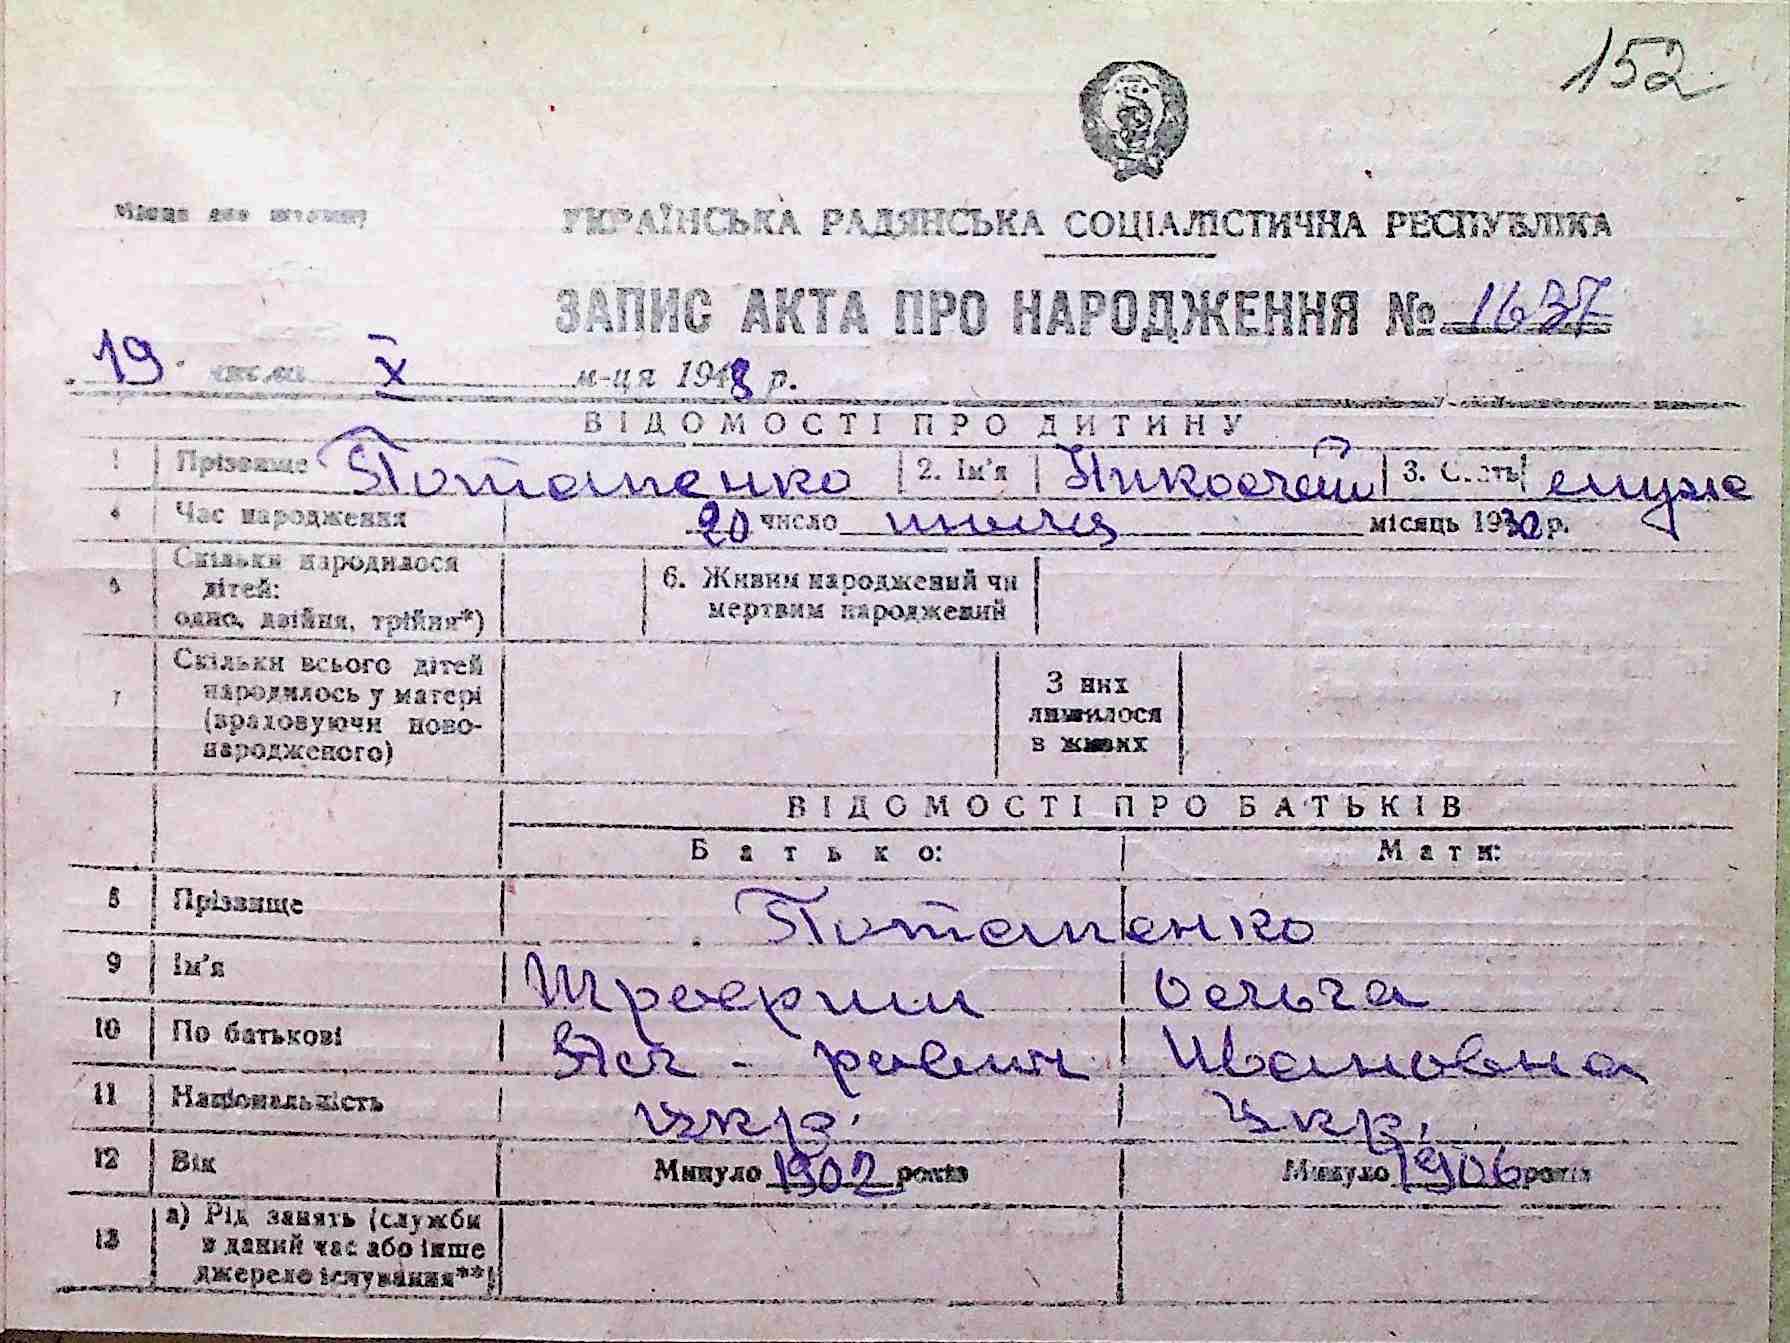 152
Місце для штампу
УКРАЇНСЬКА РАДЯНСЬКА СОЦІАЛІСТИЧНА РЕСПУБЛІКА
ЗАПИС АКТА ПРО НАРОДЖЕННЯ № 1637
19 числа X м-ця 1948 р.
ВІДОМОСТІ ПРО ДИТИНУ
1 Прізвище Потапенко 2. Ім'я Николай 3. Стать муж
4 Час народження 20 число июля місяць 1930 р.
5 Скільки народилося дітей: одно, двійня, трійня*) 6. Живим народжений чи мертвим народжений
7 Скільки всього дітей народилось у матері (враховуючи новонародженого) З них лишилося в живих
ВІДОМОСТІ ПРО БАТЬКІВ
Батько: Мати:
8 Прізвище Потапенко
9 Ім'я Трофим Ольга
10 По батькові Ивановна
11 Національність укр. укр.
12 Вік Минуло 1902 років Минуло 1906 років
13 а) Рід занять (служби в даний час або інше джерело існування**)